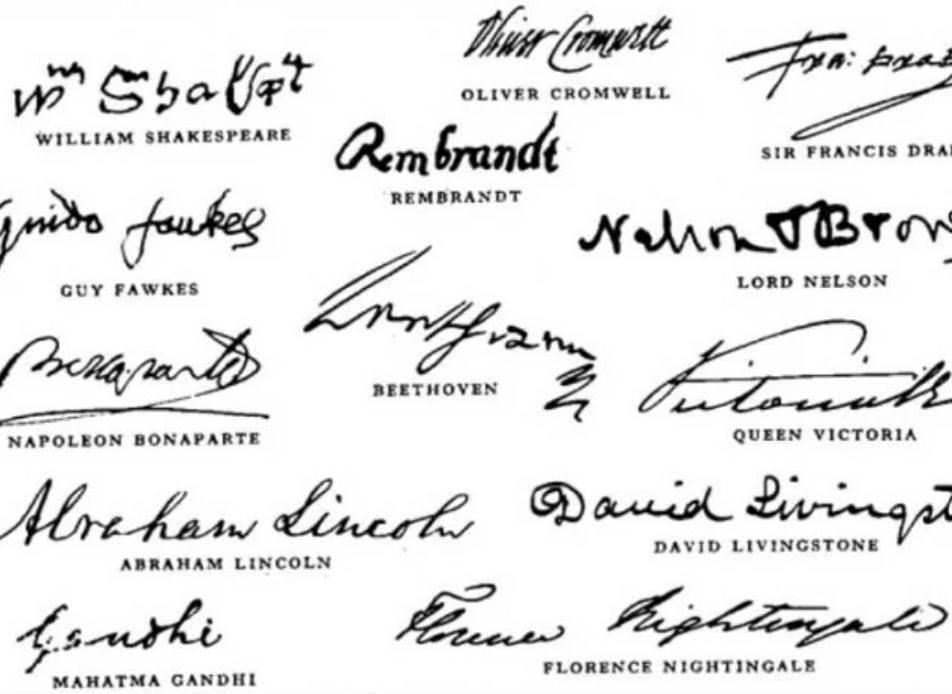 Oliver Cromwell
OLIVER CROMWELL
Wm Shakspt
WILLIAM SHAKESPEARE
Fra: Dra
SIR FRANCIS DRA
Rembrandt
REMBRANDT
Guido fawkes
GUY FAWKES
Nelson & Bron
LORD NELSON
BEETHOVEN
Bonaparte
NAPOLEON BONAPARTE
Victoria R
QUEEN VICTORIA
Abraham Lincoln
ABRAHAM LINCOLN
David Livingst
DAVID LIVINGSTONE
Gandhi
MAHATMA GANDHI
Florence Nightingale
FLORENCE NIGHTINGALE